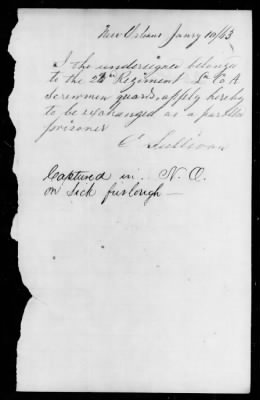 New Orleans Janry 10/63
I the undersigned belongs
to the 2nd Regiment La Va
Screwmen guards, apply hereby
to be exchanged as a parolled
prisoner
Sullivan
Captured in. N. O.
on sick furlough —